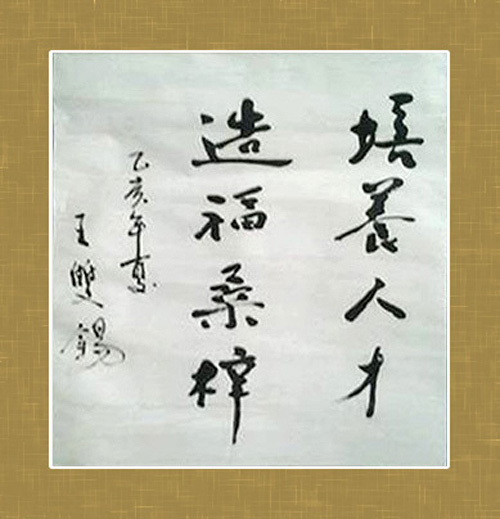 培養人才
造福桑梓
乙亥年夏
王雙錫